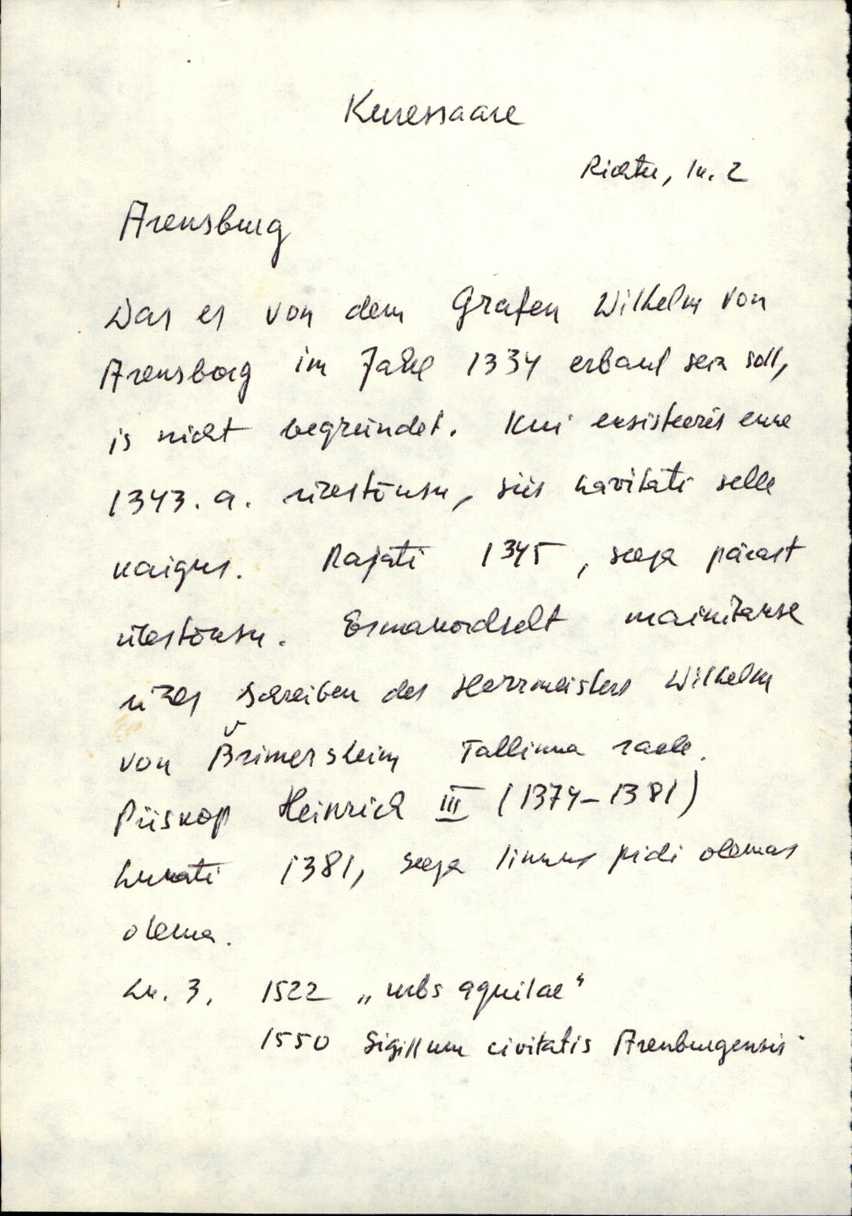 Kuressaare
Richter, lk. 2
Arensburg
Das es von dem Grafen Wilhelm von
Arensborg im Jahre 1334 erbaut sein soll,
is nicht begründet. Kui eksisteeris enne
1343. a. ülestõusu, siis hävitati selle
käigus. Rajati 1345, seega pärast
ülestõusu. Esmakordselt mainitakse
ühes Schreiben des Herrmeisters Wilhelm
von Vrimersheim Tallinna raele.
Piiskop Heinrich III (1374–1381)
hukati 1381, seega linnus pidi olemas
olema.
Lk. 3. 1522 „urbs aquilae“
1550 Sigillum civitatis Arenburgensis